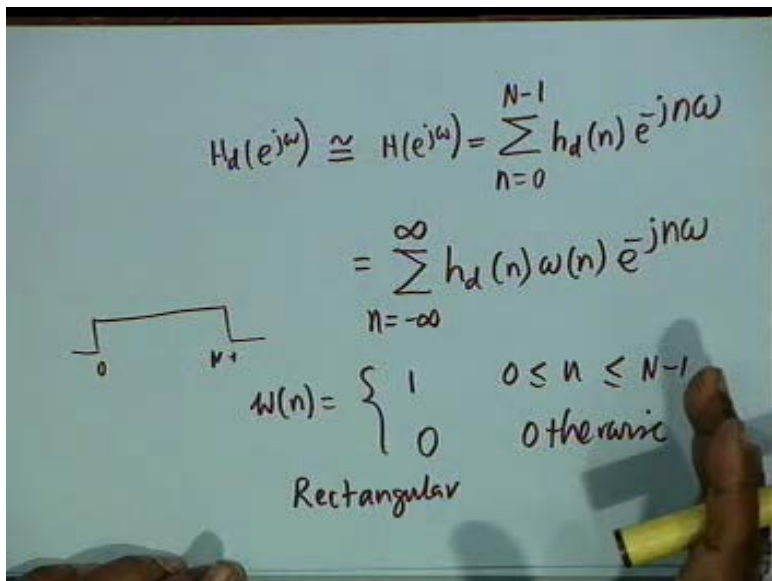 H_d(e^{jω}) ≅ H(e^{jω}) = ∑_{n=0}^{N-1} h_d(n) e^{-jnω}
= ∑_{n=-∞}^{∞} h_d(n) ω(n) e^{-jnω}
0 N-1
w(n) = { 1 0 ≤ n ≤ N-1
0 Otherwise
Rectangular